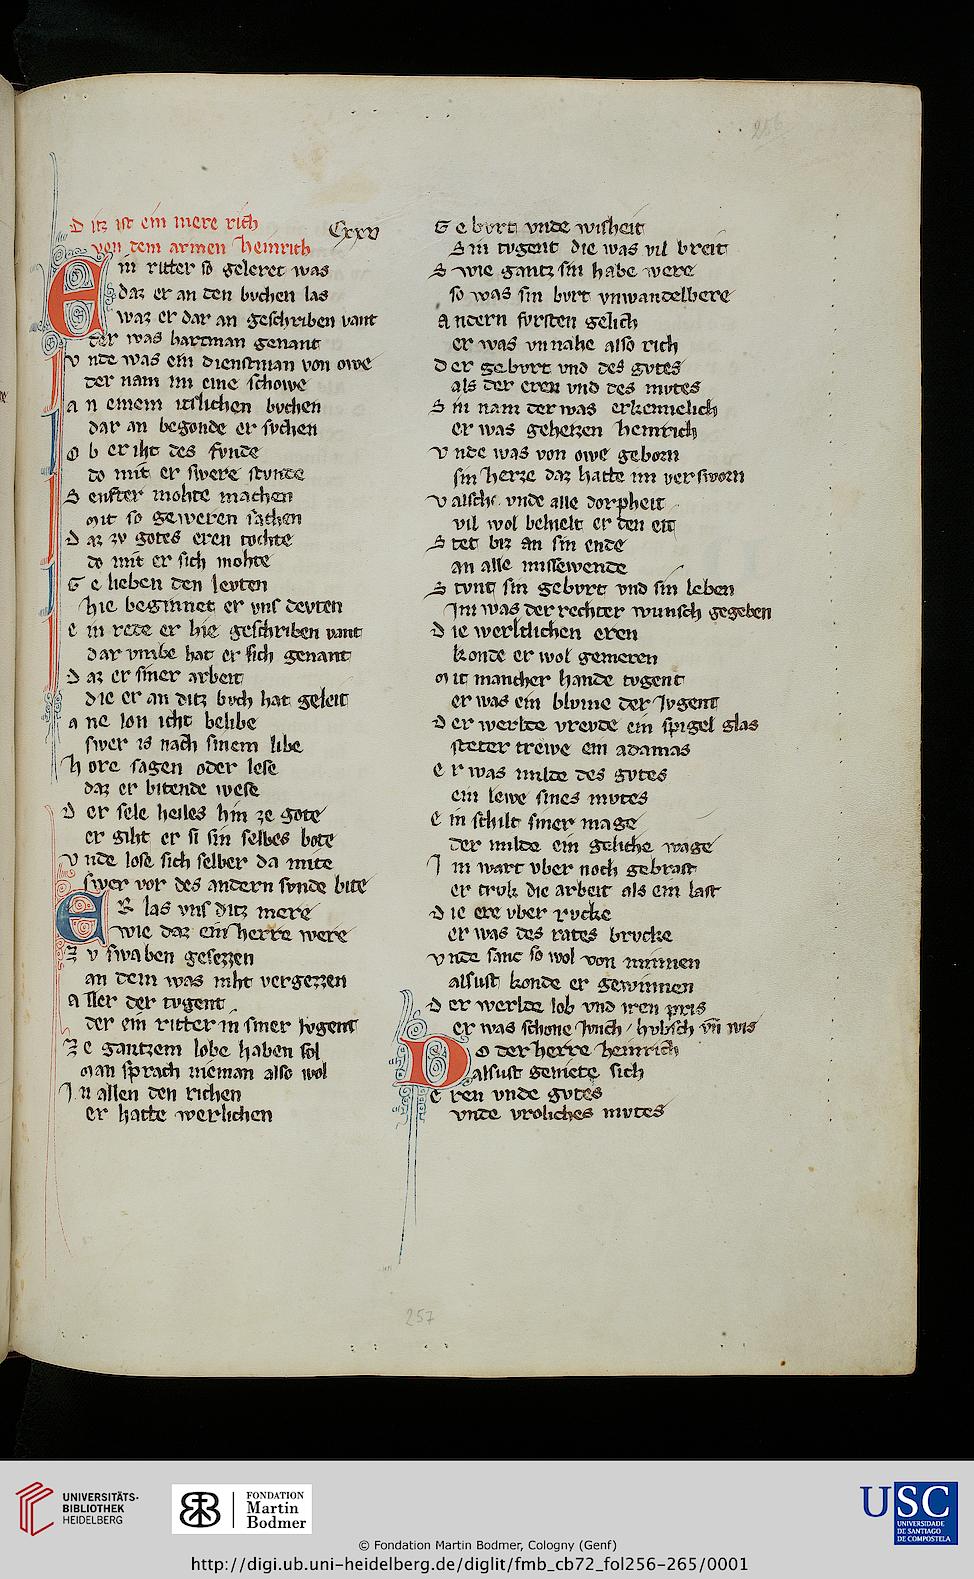 Ditz ist ein mere rich
von dem armen Heinrich
Cxxv
Ein ritter so geleret was
daz er an den buchen las
waz er dar an geschriben vant
der was hartman genant
Vnde was ein dienstman von owe
der nam im eine schowe
An einem itslichen buchen
dar an begonde er suchen
Ob er iht des funde
do mit er swere stunde
Senfter mohte machen
Mit so geweren sachen
Daz zv gotes eren tochte
do mit er sich mohte
Gelieben den levten
hie beginnet er vns devten
Ein rede er hie geschriben vant
dar vmbe hat er sich genant
Daz er siner arbeit
die er an ditz buch hat geleit
Ane lon icht belibe
swer is nach sinem libe
Hore sagen oder lese
daz er bitende wese
Der sele heiles hin ze gote
er giht er si sin selbes bote
Vnde lose sich selber da mite
swer vor des andern sunde bite
ER las vns ditz mere
wie daz ein herre were
Zv swaben gesezzen
an dem was niht vergezzen
Aller der tvgent
der ein ritter in siner Jvgent
Ze gantzem lobe haben sol
Man sprach nieman also wol
Jn allen den richen
er hatte werlichen
Gebvrt vnde wisheit
Sin tvgent die was vil breit
Swie gantz sin habe were
so was sin bvrt vnwandelbere
Andern fvrsten gelich
er was vil nahe also rich
Der gebvrt vnd des gvtes
als der eren vnd des mvtes
Sin nam der was erkennelich
er was geheizen Heinrich
Vnde was von owe geborn
sin herze daz hatte im versworn
Valsch vnde alle dorpheit
vil wol behielt er den eit
Stet biz an sin ende
an alle missewende
Stvnt sin gebvrt vnd sin leben
Jm was der rechter wunsch gegeben
Die werltlichen eren
konde er wol gemeren
Mit mancher hande tvgent
er was ein blvme der Jvgent
Der werlte vrevde ein spigel glas
steter trewe ein adamas
Er was milde des gvtes
ein lewe sines mvtes
Ein schilt siner mage
der milde ein geliche wage
Jm wart vber noch gebrast
er truk die arbeit als ein last
Die ere vber rvcke
er was des rates brvcke
Vnde sanc so wol von minnen
alsust konde er gewinnen
Der werlde lob vnd iren pris
er was schone Jvnch hvbsch vn̄ wis
Do der herre Heinrich
alsust geniete sich
Eren vnde gvtes
vnde vroliches mvtes
257
UNIVERSITÄTS-
BIBLIOTHEK
HEIDELBERG
FONDATION
Martin
Bodmer
USC
UNIVERSIDADE
DE SANTIAGO
DE COMPOSTELA
© Fondation Martin Bodmer, Cologny (Genf)
http://digi.ub.uni-heidelberg.de/diglit/fmb_cb72_fol256-265/0001